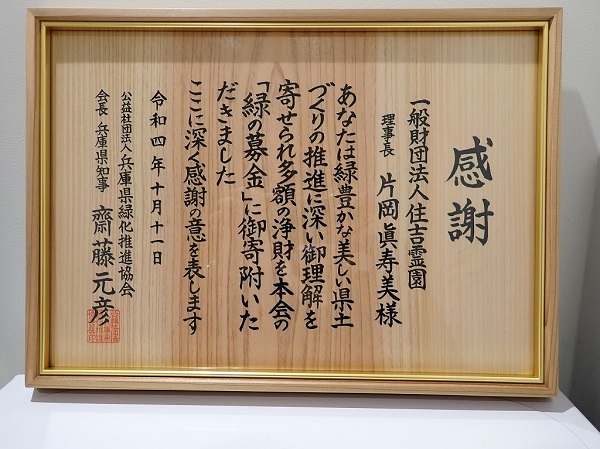 感謝
一般財団法人住吉霊園
理事長 片岡眞寿美様
あなたは緑豊かな美しい県土
づくりの推進に深い御理解を
寄せられ多額の浄財を本会の
「緑の募金」に御寄附いた
だきました
ここに深く感謝の意を表します
令和四年十月十一日
公益社団法人兵庫県緑化推進協会
会長 兵庫県知事 齋藤元彦